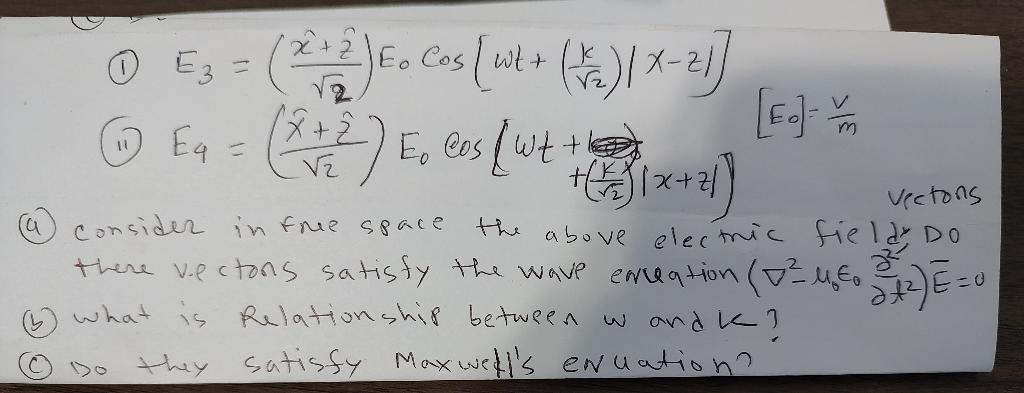 ① E₃ = (x̂+ẑ/√2) E₀ Cos [wt + (k/√2)|x-z|]
[E₀] = V/m
② E₄ = (x̂+ẑ/√2) E₀ Cos [wt +
+(k/√2)|x+z|]
vectors
ⓐ consider in free space the above electric field, Do
there vectons satisfy the wave enuation (∇² - μ₀ε₀ ∂²/∂t²) E̅ = 0
ⓑ what is Relationship between w and k?
ⓒ Do they satisfy Maxwell's enuation?